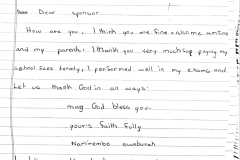 Dear Dear sponsor
How are you, I think you are fine. also me am fine
and my parents. I thank you very much for paying my
school fees termly, I performed well in my exams and
Let us thank God in all ways.
may God bless you.
your's Faith Fully
Namirembe